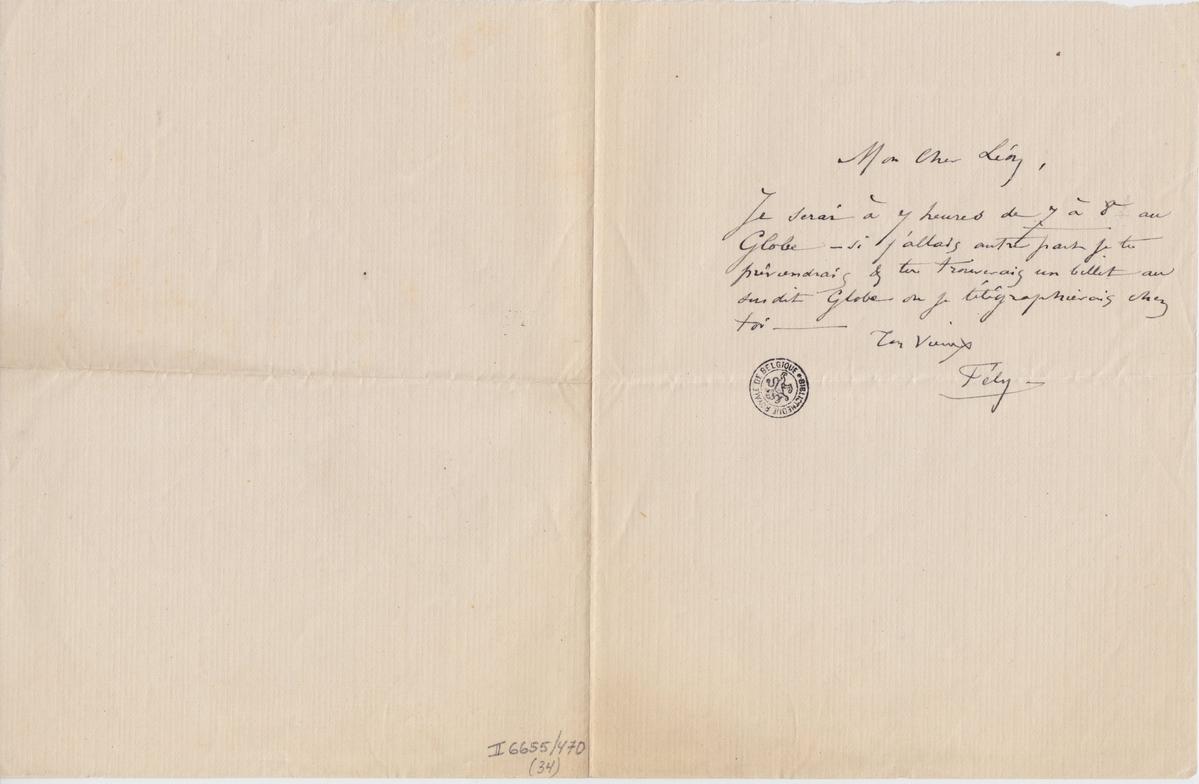 Mon Cher Léon,
Je serai à 7 heures de 7 à 8 au
Globe – si j'allais autre part je te
préviendrais & tu trouverais un billet au
susdit Globe ou je télégraphierais chez
toi ———
Ton Vieux
Fély –
BIBLIOTHEQUE ROYALE DE BELGIQUE
II 6655/470
(34)